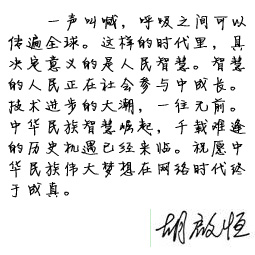 一声叫喊，呼吸之间可以
传遍全球。这样的时代里，具
决定意义的是人民智慧。智慧
的人民正在社会参与中成长。
技术进步的大潮，一往无前。
中华民族智慧崛起，千载难逢
的历史机遇已经来临。祝愿中
华民族伟大梦想在网络时代终
于成真。
胡启恒